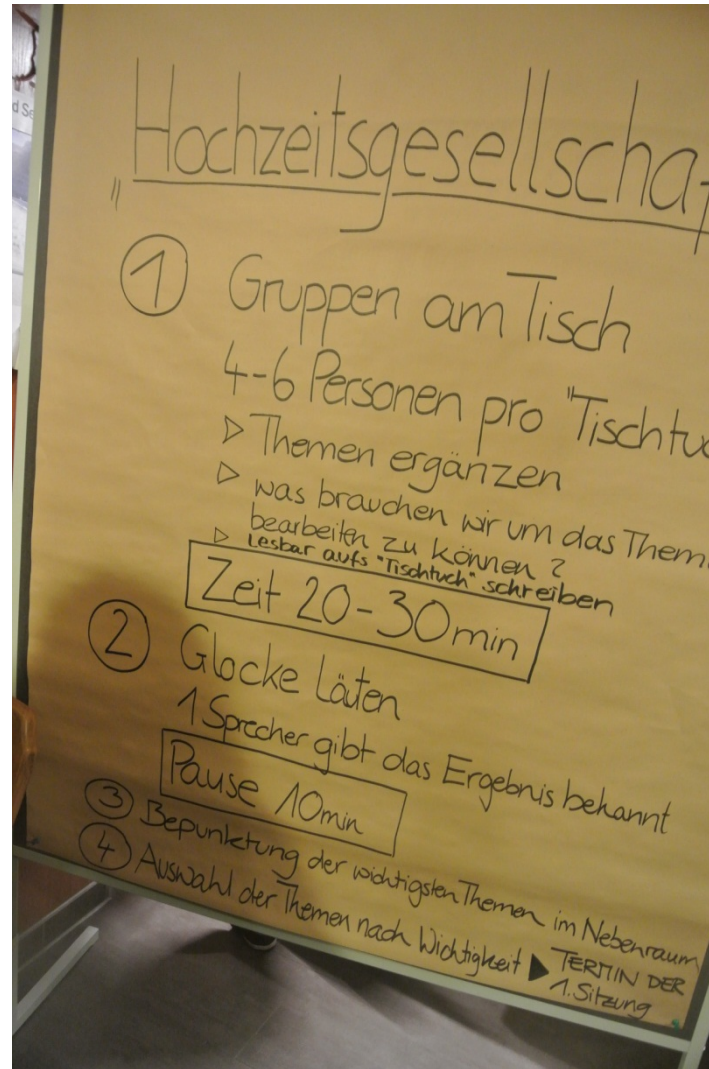 d Se
„Hochzeitsgesellschaf
① Gruppen am Tisch
4-6 Personen pro "Tischtuc
▷ Themen ergänzen
▷ was brauchen wir um das Them
bearbeiten zu können?
▷ Lesbar aufs "Tischtuch" schreiben
Zeit 20-30min
② Glocke Läuten
1 Sprecher gibt das Ergebnis bekannt
Pause 10min
③ Bepunktung der wichtigsten Themen im Nebenraum
④ Auswahl der Themen nach Wichtigkeit ▶ TERMIN DER
1. Sitzung